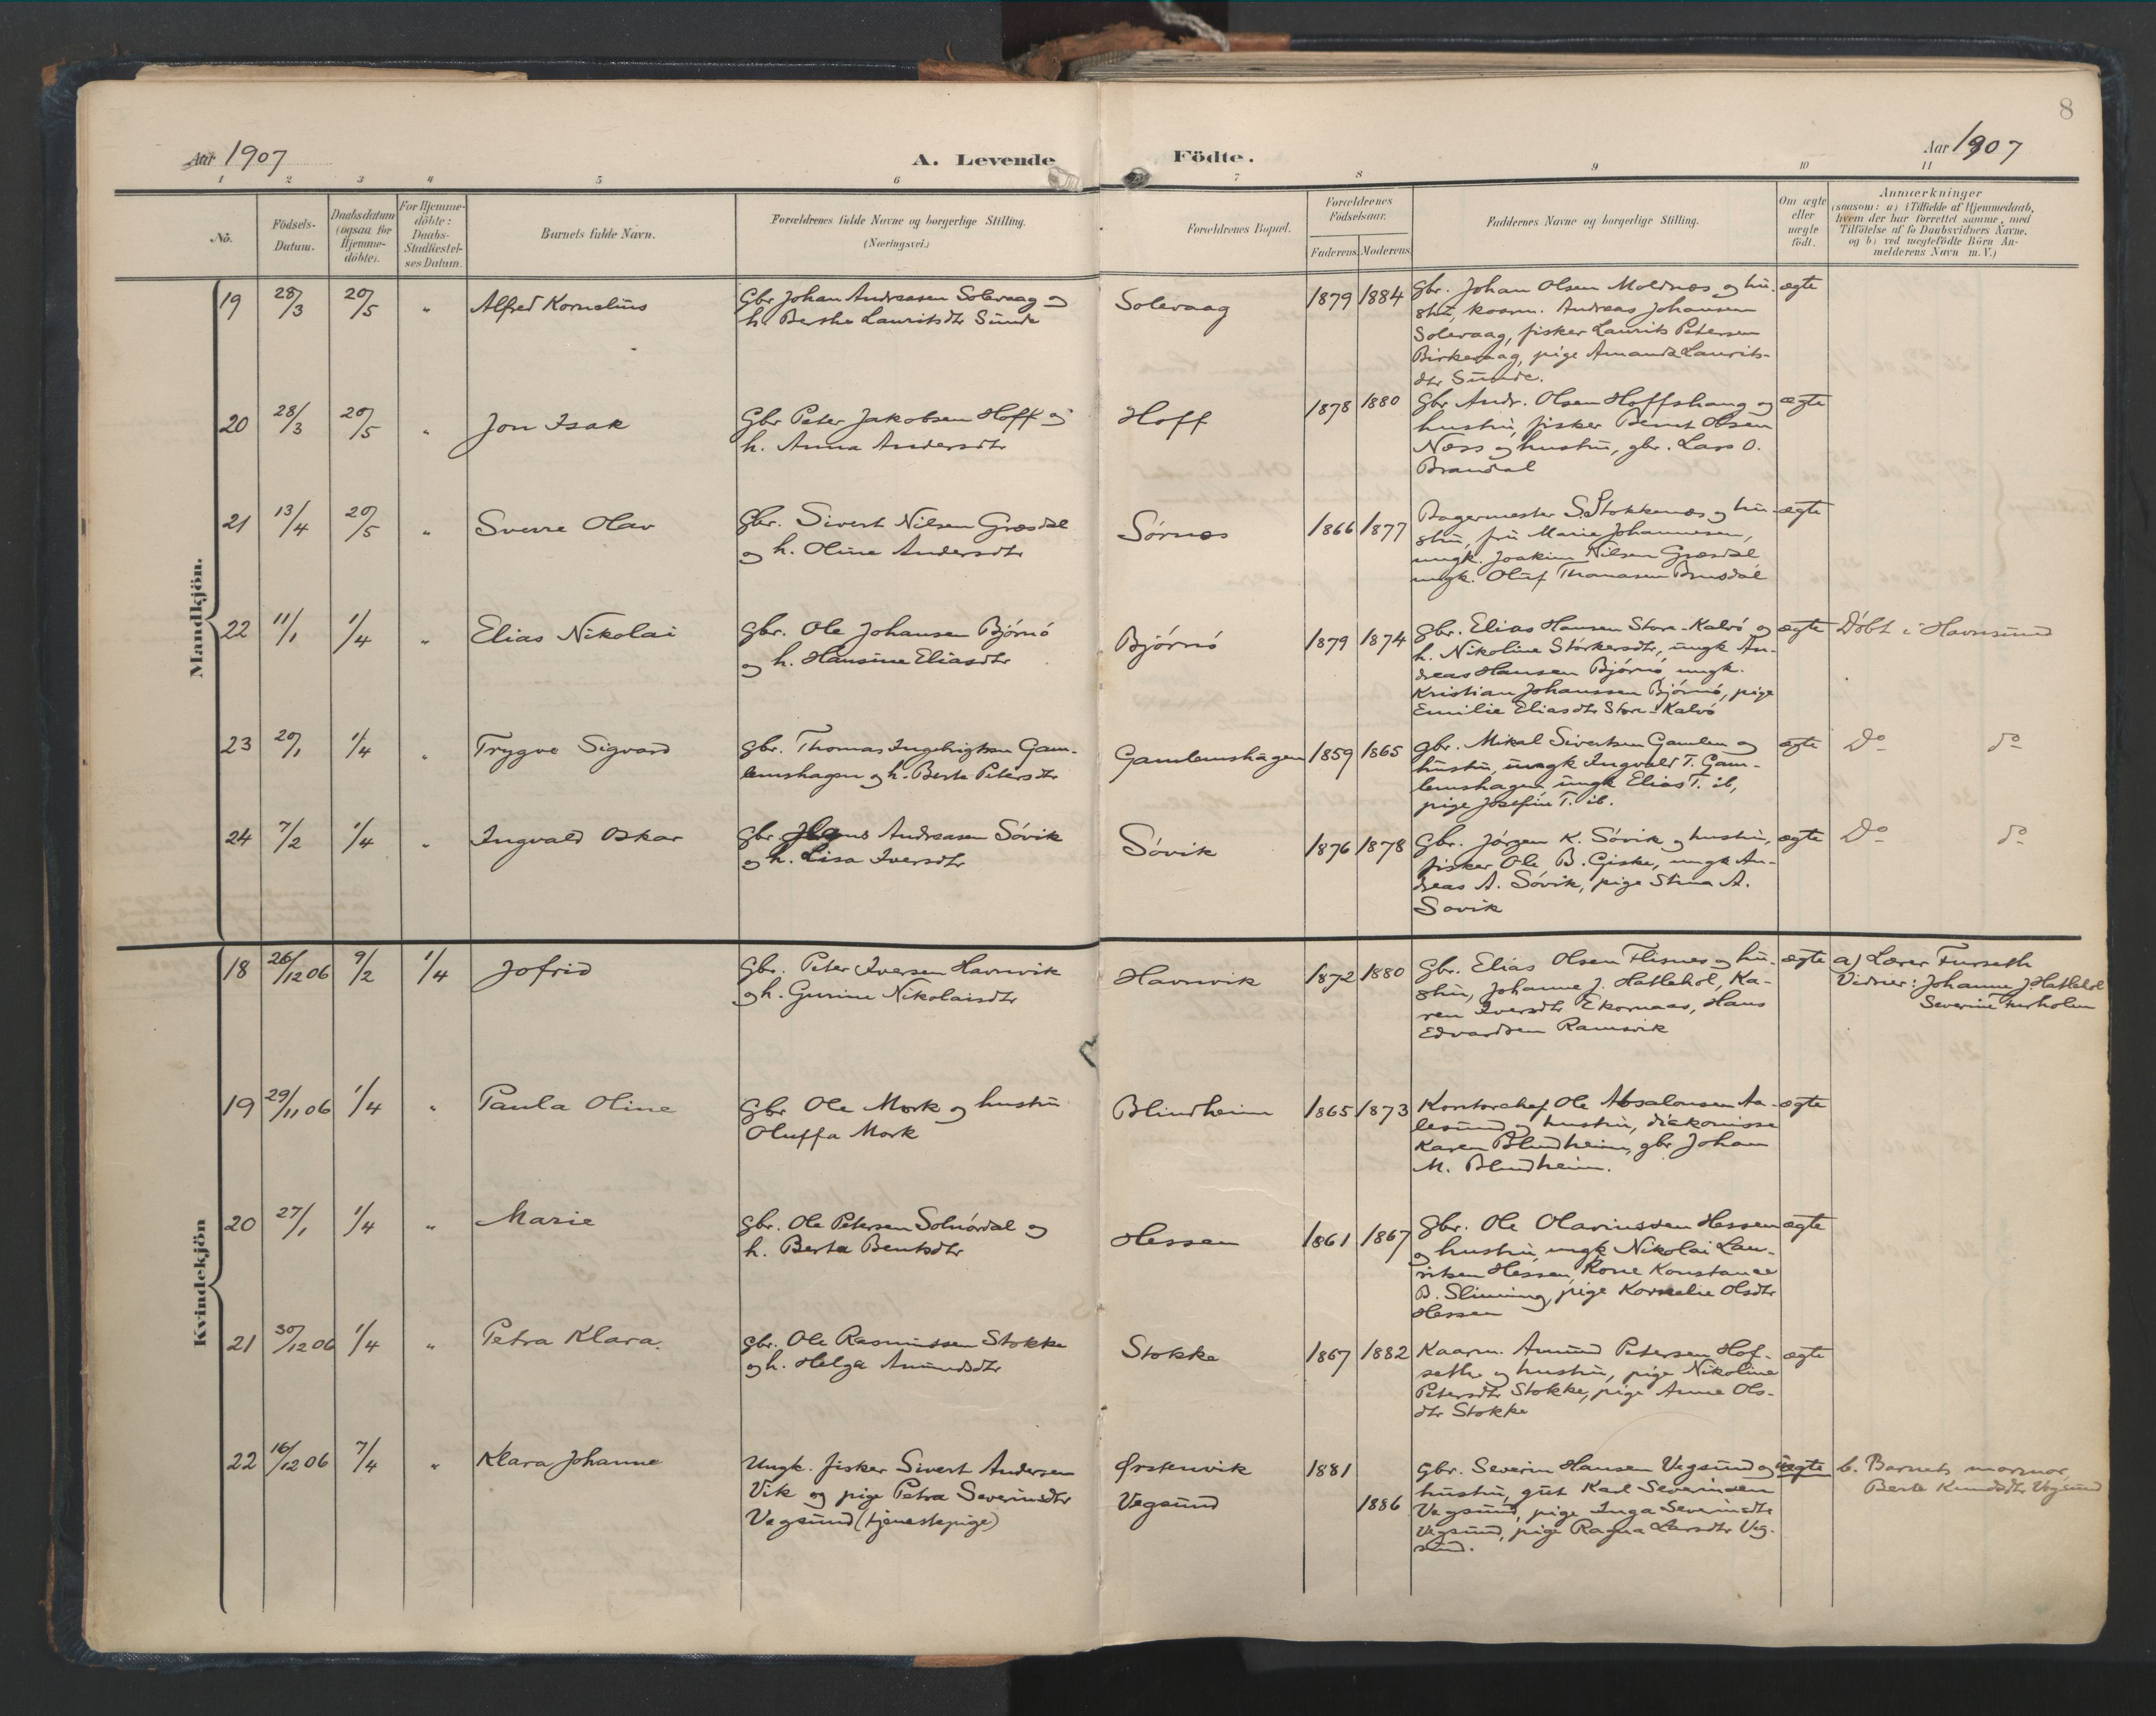 8
Aar 1907
A. Levende
Födte.
Aar 1907
1 2 3 4 5 6 7 8 9 10 11
No.
Födsels-
Datum.
Daabsdatum
(ogsaa for
Hjemme-
döbte).
For Hjemme-
döbte:
Daabs-
Stadfæstel-
ses Datum.
Barnets fulde Navn.
Forældrenes fulde Navne og borgerlige Stilling.
(Næringsvei.)
Forældrenes Bopæl.
Forældrenes
Födselsaar.
Faderens. Moderens.
Faddernes Navne og borgerlige Stilling.
Om ægte
eller
uægte
födt.
Anmærkninger
(saasom: a) i Tilfælde af Hjemmedaab,
hvem der har forrettet samme, med
Tilföielse af to Daabsvidners Navne,
og b) ved uægtefödte Börn An-
melderens Navn m. V.)
Mandkjön.
19 28/3 20/5 " Alfred Kornelius
Gbr Johan Andreasen Solevaag og
h. Berthe Lauritsdtr Sunde
Solevaag 1879 1884
Gbr. Johan Olsen Moldnes og hu-
stru, kaarm. Andreas Johansen
Solevaag, fisker Laurits Petersen
Birkevaag, pige Amanda Laurits-
dtr Sunde.
ægte
20 28/3 20/5 " Jon Isak
Gbr Peter Jakobsen Hoff og
h. Anna Andersdtr
Hoff 1878 1880
Gbr Andr. Olsen Hoffshaug og
hustru, fisker Bernt Olsen
Næss og hustru, gbr. Lars O.
Brandal
ægte
21 13/4 20/5 " Sverre Olav
Gbr. Sivert Nilsen Græsdal
og h. Oline Andersdtr
Sörnes 1866 1877
Bagermester S. Stokkenes og hu-
stru, fru Marie Johannesen,
ungk. Joakim Nilsen Græsdal
ungk. Oluf Thomasen Brusdal
ægte
22 11/1 1/4 " Elias Nikolai
gbr. Ole Johansen Björnö
og h. Hansine Eliasdtr
Björnö 1879 1874
gbr. Elias Hansen Store-Kalvö og
h. Nikoline Störkersdtr, ungk An-
dreas Hansen Björnö, ungk.
Kristian Johanssen Björnö, pige
Emilie Eliasdtr Store-Kalvö
ægte
Döbt i Havnsund
23 20/1 1/4 " Trygve Sigvard
gbr. Thomas Ingebrigtsen Gam-
lemshagen og h. Berte Petersdtr
Gamlemshagen 1859 1865
gbr. Mikal Sivertsen Gamlem og
hustru, ungk Ingvald T. Gam-
lemshagen, ungk Elias T. ib,
pige Josefine T. ib.
ægte
Do do
24 7/2 1/4 " Ingvald Oskar
gbr. Hans Andreasen Sövik
og h. Lisa Iversdtr
Sövik 1876 1878
Gbr. Jörgen K. Sövik og hustru,
fisker Ole B. Giske, ungk An-
dreas A. Sövik, pige Stina A.
Sovik
ægte
Do do
Kvindekjön
18 26/12 06 9/2 1/4 Jofrid
Gbr. Peter Iversen Havnvik
og h. Gurine Nikolaisdtr
Havnvik 1872 1880
Gbr. Elias Olsen Flisnes og hu-
stru, Johanne J. Hatlehol, Ka-
ren Iversdtr Ekornaas, Hans
Edvardsen Ramsvik
ægte
a) Lærer Furseth
Vidner: Johanne J. Hatlehol
Severine Furholm
19 29/11 06 1/4 " Paula Oline
Gbr Ole Mork og hustru
Oluffa Mork
Blindheim 1865 1873
Kontorchef Ole Absalonsen Aa-
lesund og hustru, diakonisse
Karen Blindheim, gbr Johan
M. Blindheim.
ægte
20 27/1 1/4 " Marie
gbr. Ole Petersen Solnördal og
h. Berta Bentsdtr
Hessen 1861 1867
Gbr. Ole Olavinussen Hessen
og hustru, ungk Nikolai Lau-
ritsen Hessen, Kone Konstance
B. Slinning, pige Kornelie Olsdtr
Hessen
ægte
21 30/12 06 1/4 " Petra Klara.
gbr. Ole Rasmussen Stokke
og h. Helga Amundsdtr
Stokke 1867 1882
Kaarm. Amund Petersen Hof-
sethe og hustru, pige Nikoline
Petersdtr Stokke, pige Anne Ols-
dtr Stokke
ægte
22 16/12 06 7/4 " Klara Johanne
Ungk. fisker Sivert Andersen
Vik og pige Petra Severinsdtr
Vegsund (tjenestepige)
Ørstenvik 1881
Vegsund 1886
gbr. Severin Hansen Vegsund og
hustru, gut Karl Severinsen
Vegsund, pige Inga Severinsdtr
Vegsund, pige Ragna Larsdtr Veg-
sund.
uegte
b. Barnets mormor,
Berte Knudsdtr Vegsund